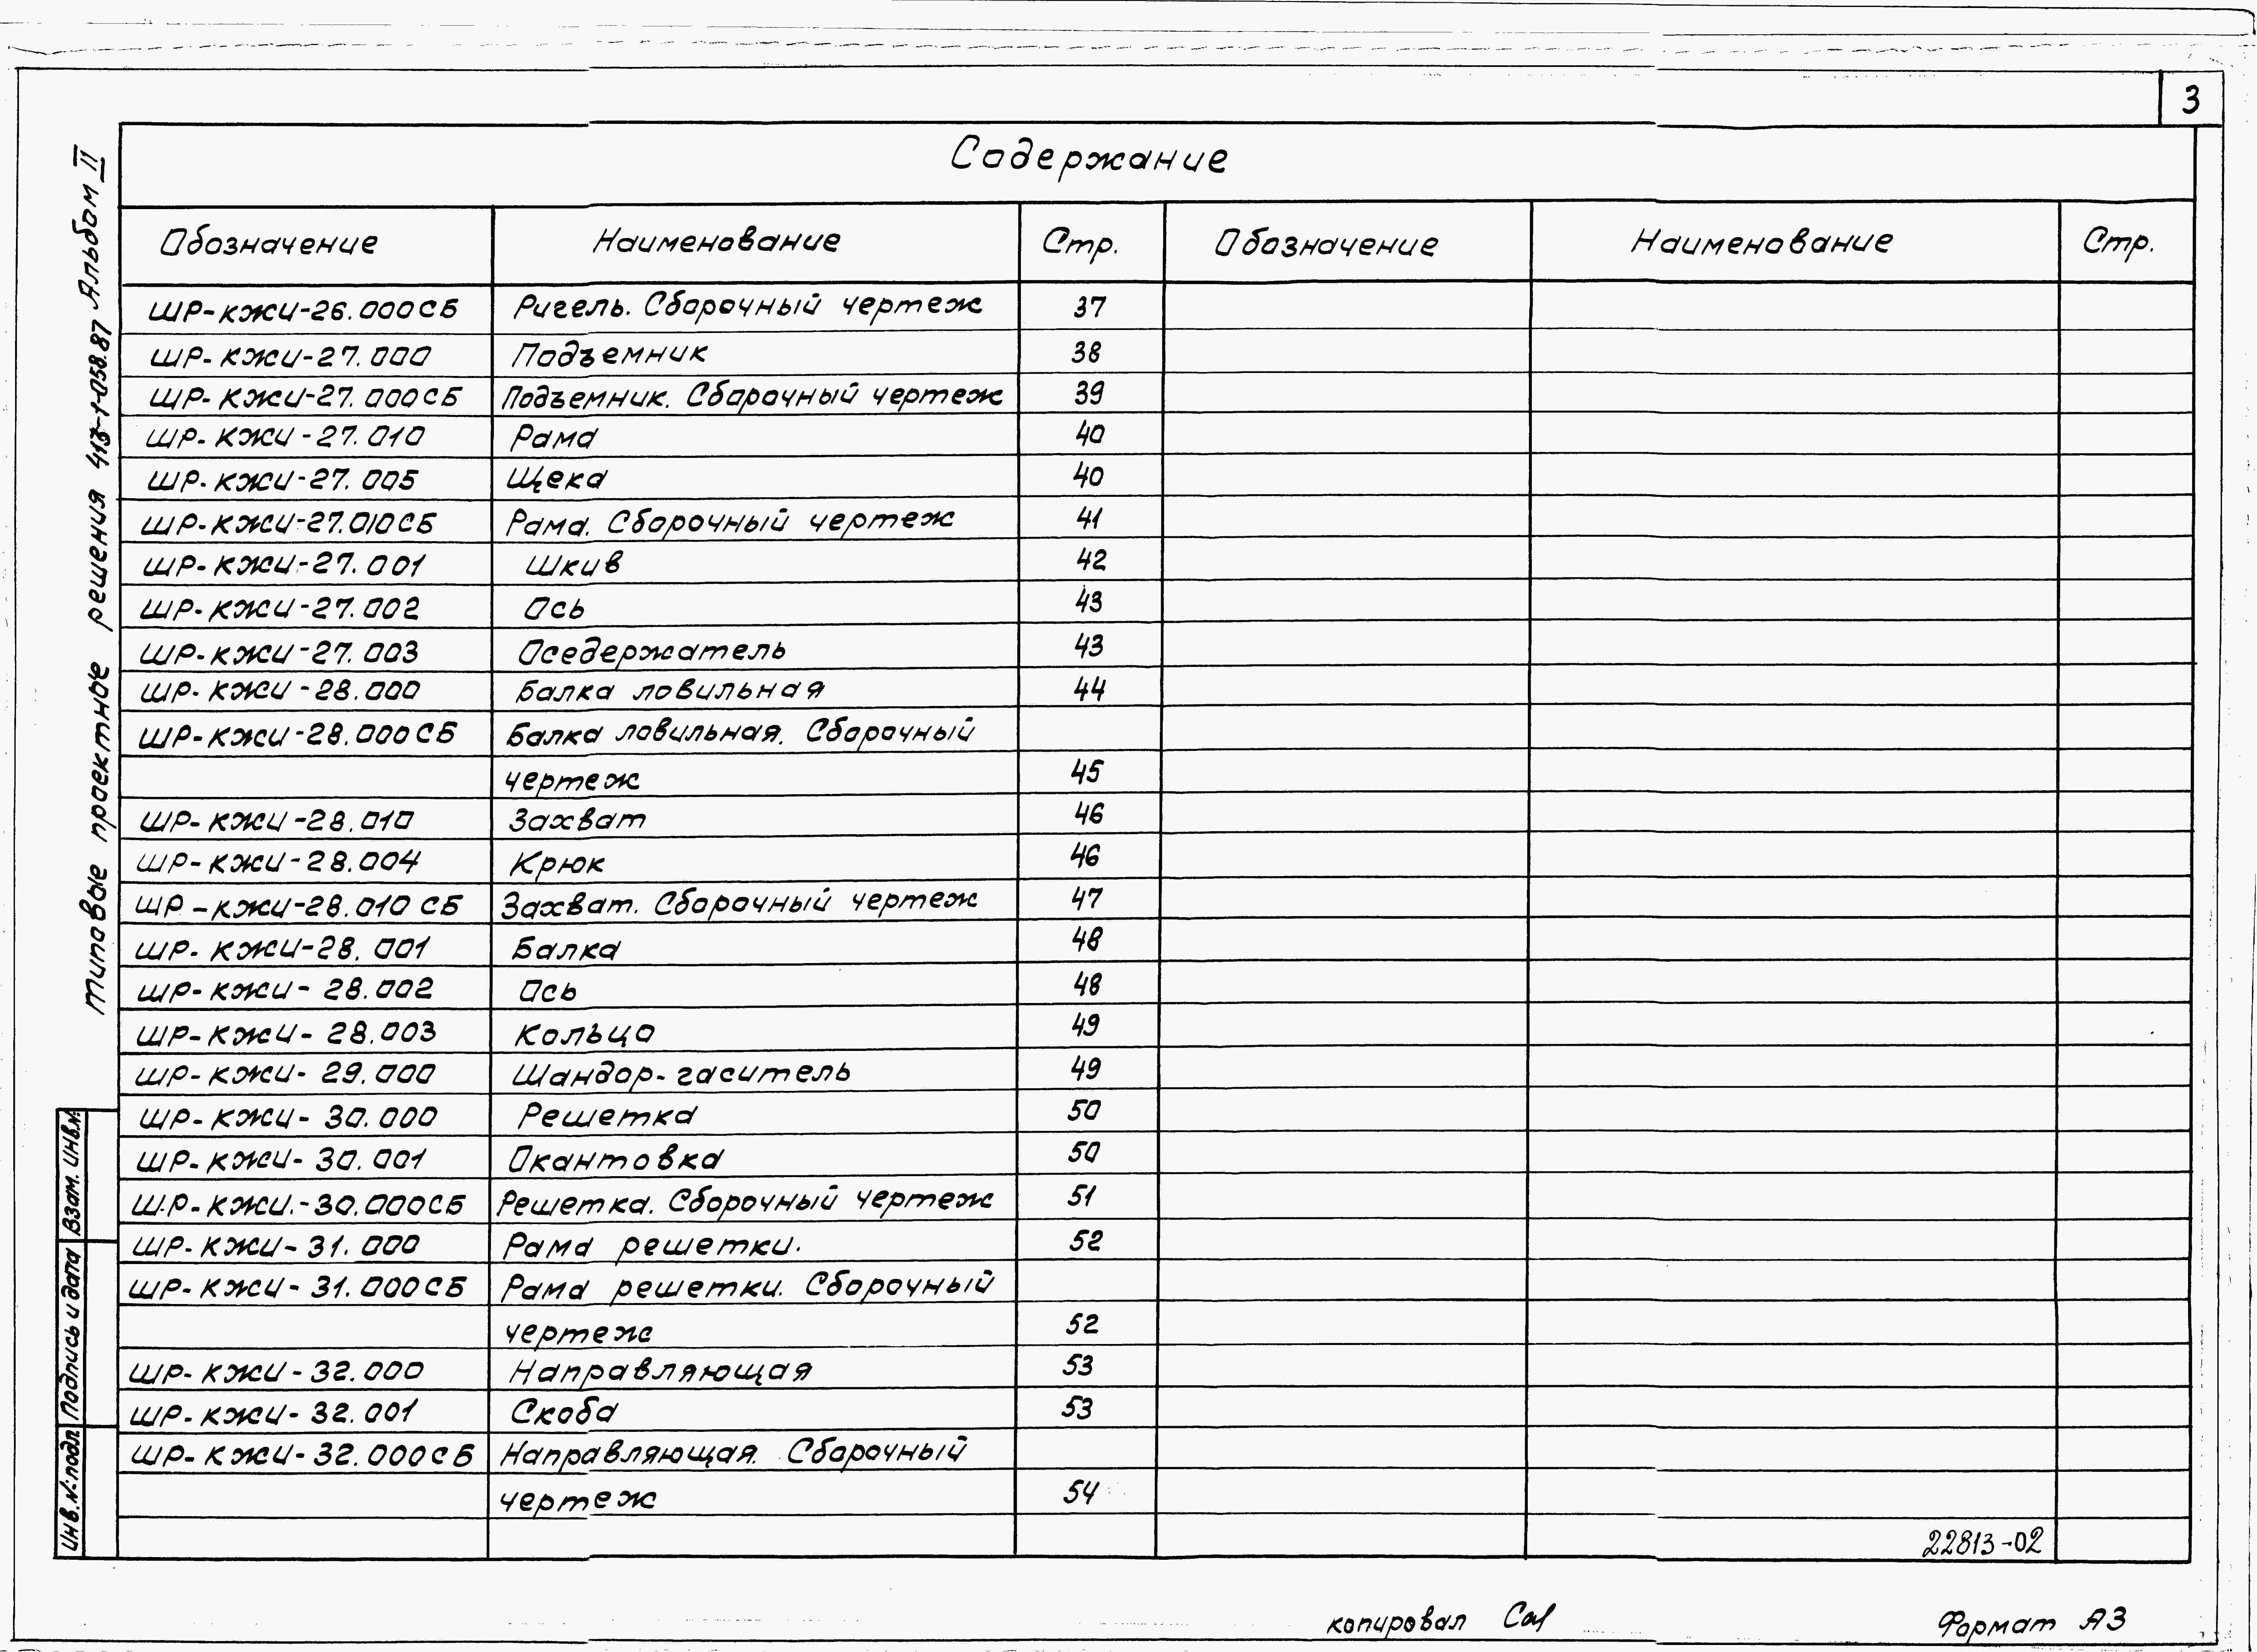 3
Содержание
Обозначение Наименование Стр. Обозначение Наименование Стр.
ШР-КЖИ-26.000СБ Ригель. Сборочный чертеж 37
ШР-КЖИ-27.000 Подъемник 38
ШР-КЖИ-27.000СБ Подъемник. Сборочный чертеж 39
ШР-КЖИ-27.010 Рама 40
ШР-КЖИ-27.005 Щека 40
ШР-КЖИ-27.010СБ Рама. Сборочный чертеж 41
ШР-КЖИ-27.001 Шкив 42
ШР-КЖИ-27.002 Ось 43
ШР-КЖИ-27.003 Оседержатель 43
ШР-КЖИ-28.000 Балка ловильная 44
ШР-КЖИ-28.000СБ Балка ловильная. Сборочный
чертеж 45
ШР-КЖИ-28.010 Захват 46
ШР-КЖИ-28.004 Крюк 46
ШР-КЖИ-28.010СБ Захват. Сборочный чертеж 47
ШР-КЖИ-28.001 Балка 48
ШР-КЖИ-28.002 Ось 48
ШР-КЖИ-28.003 Кольцо 49
ШР-КЖИ-29.000 Шандор-гаситель 49
ШР-КЖИ-30.000 Решетка 50
ШР-КЖИ-30.001 Окантовка 50
Ш.Р-КЖИ.-30.000СБ Решетка. Сборочный чертеж 51
ШР-КЖИ-31.000 Рама решетки. 52
ШР-КЖИ-31.000СБ Рама решетки. Сборочный
чертеж 52
ШР-КЖИ-32.000 Направляющая 53
ШР-КЖИ-32.001 Скоба 53
ШР-КЖИ-32.000СБ Направляющая. Сборочный
чертеж 54
22813-02
Типовые проектные решения 413-1-058.87 Альбом II
Взам. инв.N
Подпись и дата
Инв.N подл.
копировал
Формат А3